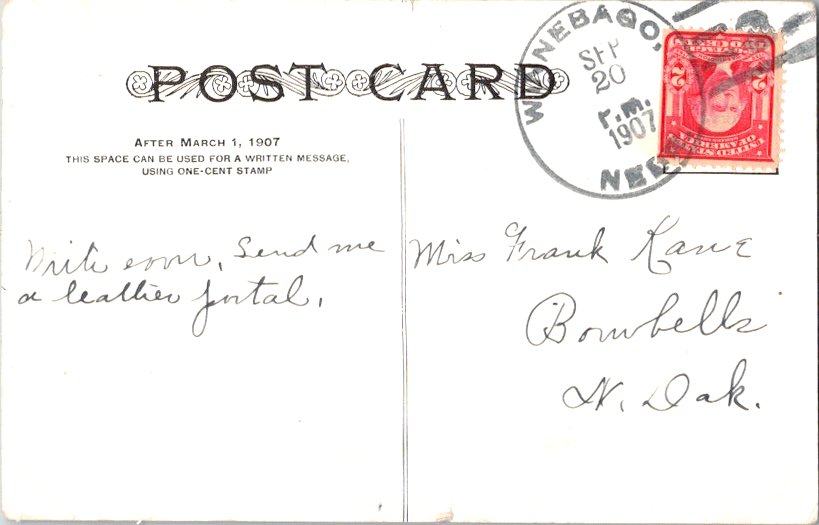 POST CARD
AFTER MARCH 1, 1907
THIS SPACE CAN BE USED FOR A WRITTEN MESSAGE,
USING ONE-CENT STAMP
WINNEBAGO,
SEP
20
P.M.
1907
NEBR
2 2
UNITED STATES OF AMERICA
Write soon, Send me
a leather postal.
Miss Frank Kane
Bowbells
N. Dak.